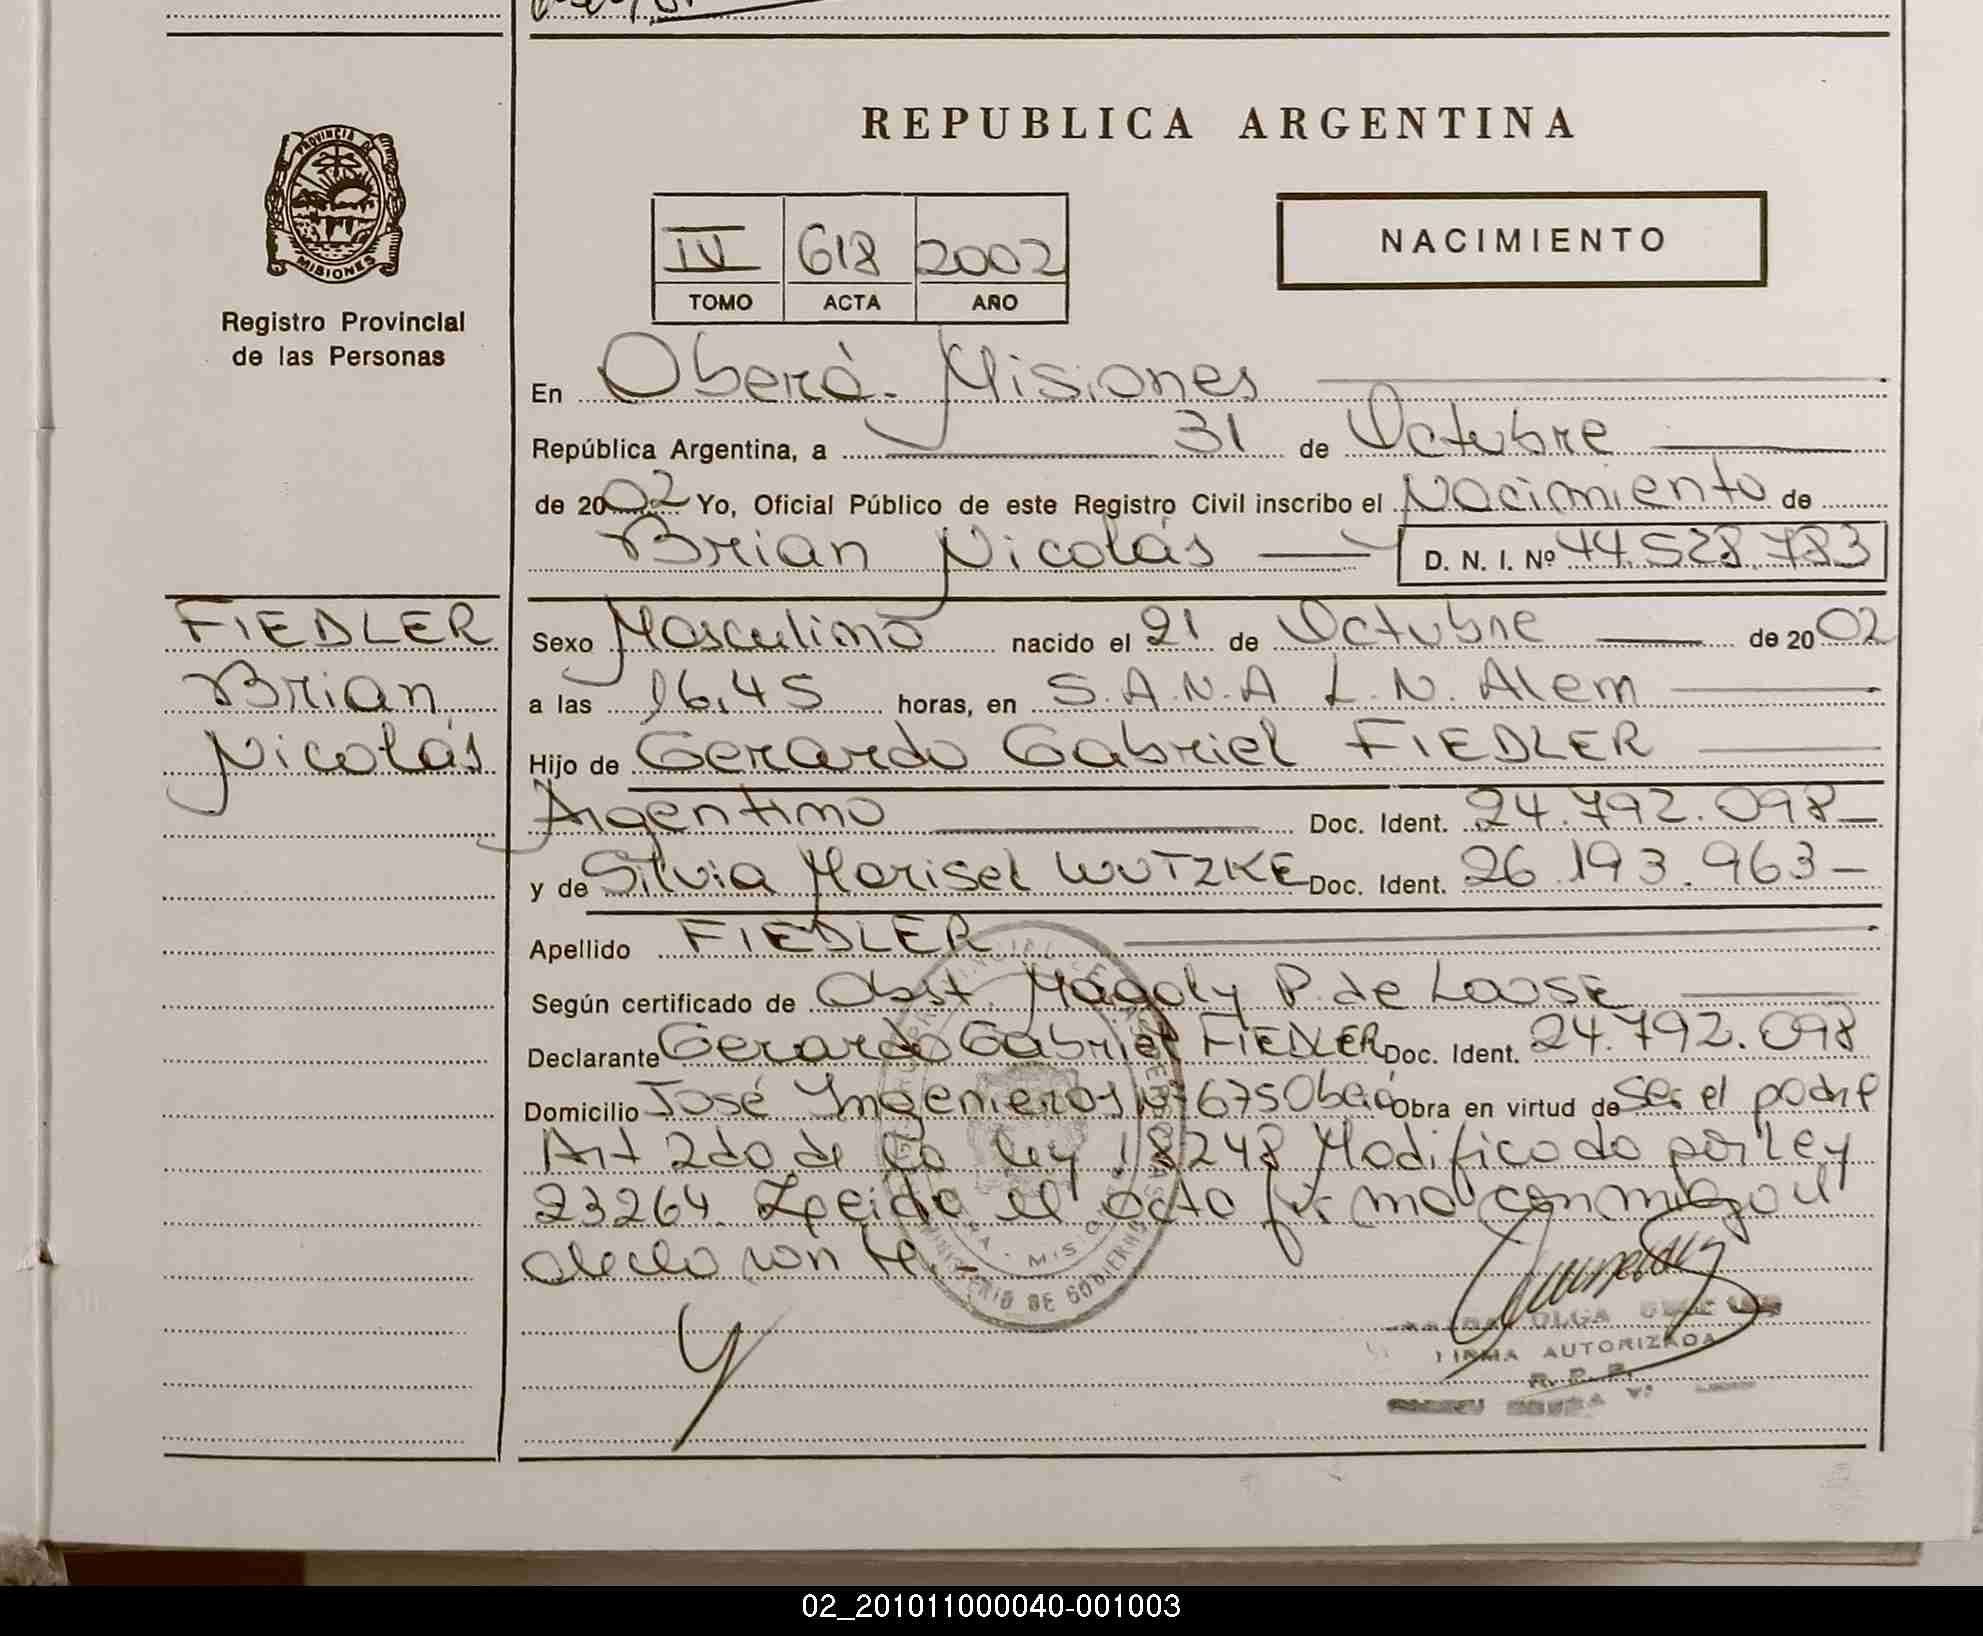 REPUBLICA ARGENTINA
PROVINCIA DE
MISIONES
Registro Provincial
de las Personas
IV 618 2002
TOMO ACTA AÑO
NACIMIENTO
En Oberá - Misiones
República Argentina, a 31 de Octubre
de 2002 Yo, Oficial Público de este Registro Civil inscribo el Nacimiento de
Brian Nicolás D. N. I. Nº 44.528.783
FIEDLER
Brian
Nicolás
Sexo Masculino nacido el 21 de Octubre de 2002
a las 16,45 horas, en S.A.N.A L.N. Alem
Hijo de Gerardo Gabriel FIEDLER
Argentino Doc. Ident. 24.792.098
y de Silvia Marisel WUTZKE Doc. Ident. 26.193.963
Apellido FIEDLER
Según certificado de Obst. Magaly P. de Loose
Declarante Gerardo Gabriel FIEDLER Doc. Ident. 24.792.098
Domicilio José Ingenieros Nº 675 Oberá Obra en virtud de ser el padre
Art 2do de la ley 18248 Modificado por ley
23264. Leida el acta firma conmigo el
declarante.-
MINISTERIO DE GOBIERNO
OLGA
FIRMA AUTORIZADA
R. P. P.
02_201011000040-001003